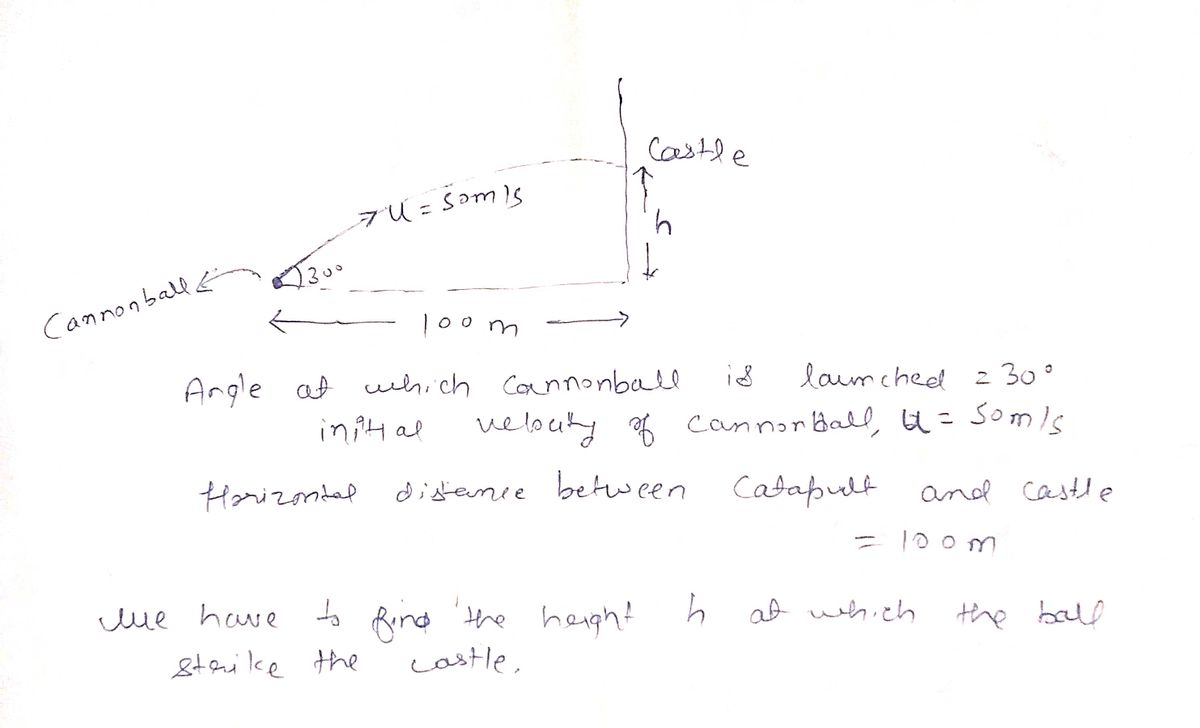 Castle
u = 50m/s
h
30°
Cannonball
100 m
Angle at which Cannonball is launched = 30°
initial velocity of cannonball, u = 50m/s
Horizontal distance between Catapult and castle
= 100m
We have to find the height h at which the ball
strike the castle.